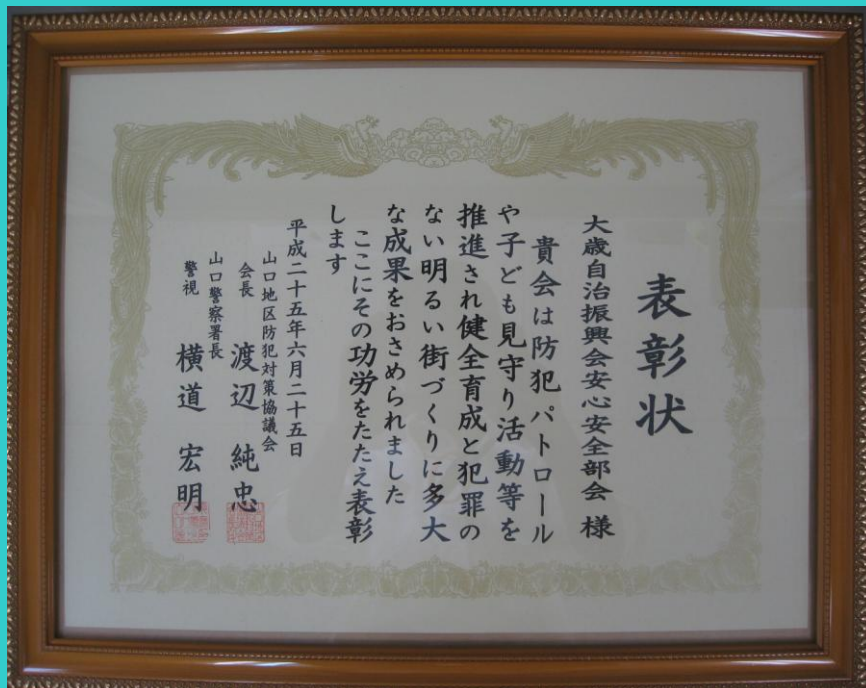 表彰状
大歳自治振興会安心安全部会 様
貴会は防犯パトロール
や子ども見守り活動等を
推進され健全育成と犯罪の
ない明るい街づくりに多大
な成果をおさめられました
ここにその功労をたたえ表彰
します
平成二十五年六月二十五日
山口地区防犯対策協議会
会長 渡辺 純忠
山口警察署長
警視 横道 宏明